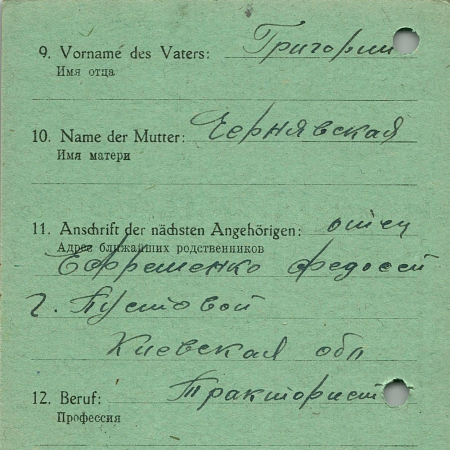 9. Vorname des Vaters: Григорий
Имя отца
10. Name der Mutter: Чернявская
Имя матери
11. Anschrift der nächsten Angehörigen: отец
Адрес ближайших родственников
Ефременко Федосей
г. Пустовой
Киевская обл
12. Beruf: Тракторист
Профессия